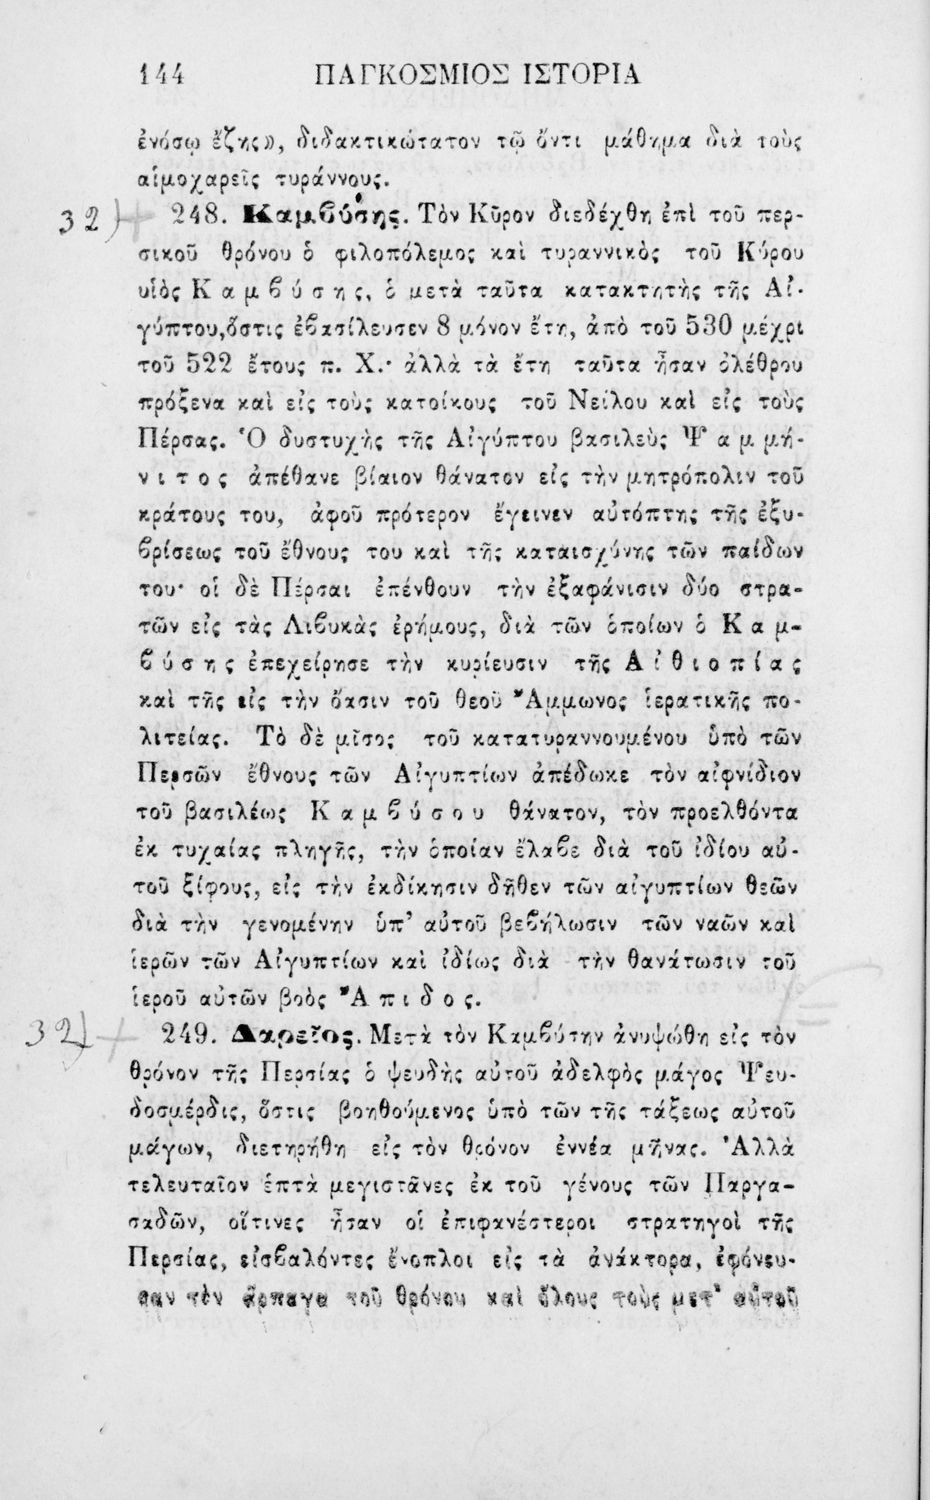 144 ΠΑΓΚΟΣΜΙΟΣ ΙΣΤΟΡΙΑ
ἐνόσῳ ἔζης», διδακτικώτατον τῷ ὄντι μάθημα διὰ τοὺς
αἱμοχαρεῖς τυράννους.
32) + 248. Καμβύσης. Τὸν Κῦρον διεδέχθη ἐπὶ τοῦ περ-
σικοῦ θρόνου ὁ φιλοπόλεμος καὶ τυραννικὸς τοῦ Κύρου
υἱὸς Καμβύσης, ὁ μετὰ ταῦτα κατακτητὴς τῆς Αἰ-
γύπτου, ὅστις ἐβασίλευσεν 8 μόνον ἔτη, ἀπὸ τοῦ 530 μέχρι
τοῦ 522 ἔτους π. Χ.· ἀλλὰ τὰ ἔτη ταῦτα ἦσαν ὀλέθρου
πρόξενα καὶ εἰς τοὺς κατοίκους τοῦ Νείλου καὶ εἰς τοὺς
Πέρσας. Ὁ δυστυχὴς τῆς Αἰγύπτου βασιλεὺς Ψαμμή-
νιτος ἀπέθανε βίαιον θάνατον εἰς τὴν μητρόπολιν τοῦ
κράτους του, ἀφοῦ πρότερον ἔγεινεν αὐτόπτης τῆς ἐξυ-
βρίσεως τοῦ ἔθνους του καὶ τῆς καταισχύνης τῶν παίδων
του· οἱ δὲ Πέρσαι ἐπένθουν τὴν ἐξαφάνισιν δύο στρα-
τῶν εἰς τὰς Λιβυκὰς ἐρήμους, διὰ τῶν ὁποίων ὁ Καμ-
βύσης ἐπεχείρησε τὴν κυρίευσιν τῆς Αἰθιοπίας
καὶ τῆς εἰς τὴν ὄασιν τοῦ θεοῦ Ἄμμωνος ἱερατικῆς πο-
λιτείας. Τὸ δὲ μῖσος τοῦ κατατυραννουμένου ὑπὸ τῶν
Περσῶν ἔθνους τῶν Αἰγυπτίων ἀπέδωκε τὸν αἰφνίδιον
τοῦ βασιλέως Καμβύσου θάνατον, τὸν προελθόντα
ἐκ τυχαίας πληγῆς, τὴν ὁποίαν ἔλαβε διὰ τοῦ ἰδίου αὐ-
τοῦ ξίφους, εἰς τὴν ἐκδίκησιν δῆθεν τῶν αἰγυπτίων θεῶν
διὰ τὴν γενομένην ὑπ' αὐτοῦ βεβήλωσιν τῶν ναῶν καὶ
ἱερῶν τῶν Αἰγυπτίων καὶ ἰδίως διὰ τὴν θανάτωσιν τοῦ
ἱεροῦ αὐτῶν βοὸς Ἄπιδος.
32) + 249. Δαρεῖος. Μετὰ τὸν Καμβύσην ἀνυψώθη εἰς τὸν
θρόνον τῆς Περσίας ὁ ψευδὴς αὐτοῦ ἀδελφὸς μάγος Ψευ-
δοσμέρδις, ὅστις βοηθούμενος ὑπὸ τῶν τῆς τάξεως αὐτοῦ
μάγων, διετηρήθη εἰς τὸν θρόνον ἐννέα μῆνας. Ἀλλὰ
τελευταῖον ἑπτὰ μεγιστᾶνες ἐκ τοῦ γένους τῶν Παργα-
σαδῶν, οἵτινες ἦσαν οἱ ἐπιφανέστεροι στρατηγοὶ τῆς
Περσίας, εἰσβαλόντες ἔνοπλοι εἰς τὰ ἀνάκτορα, ἐφόνευ-
σαν τὸν ἅρπαγα τοῦ θρόνου καὶ ὅλους τοὺς μετ' αὐτοῦ